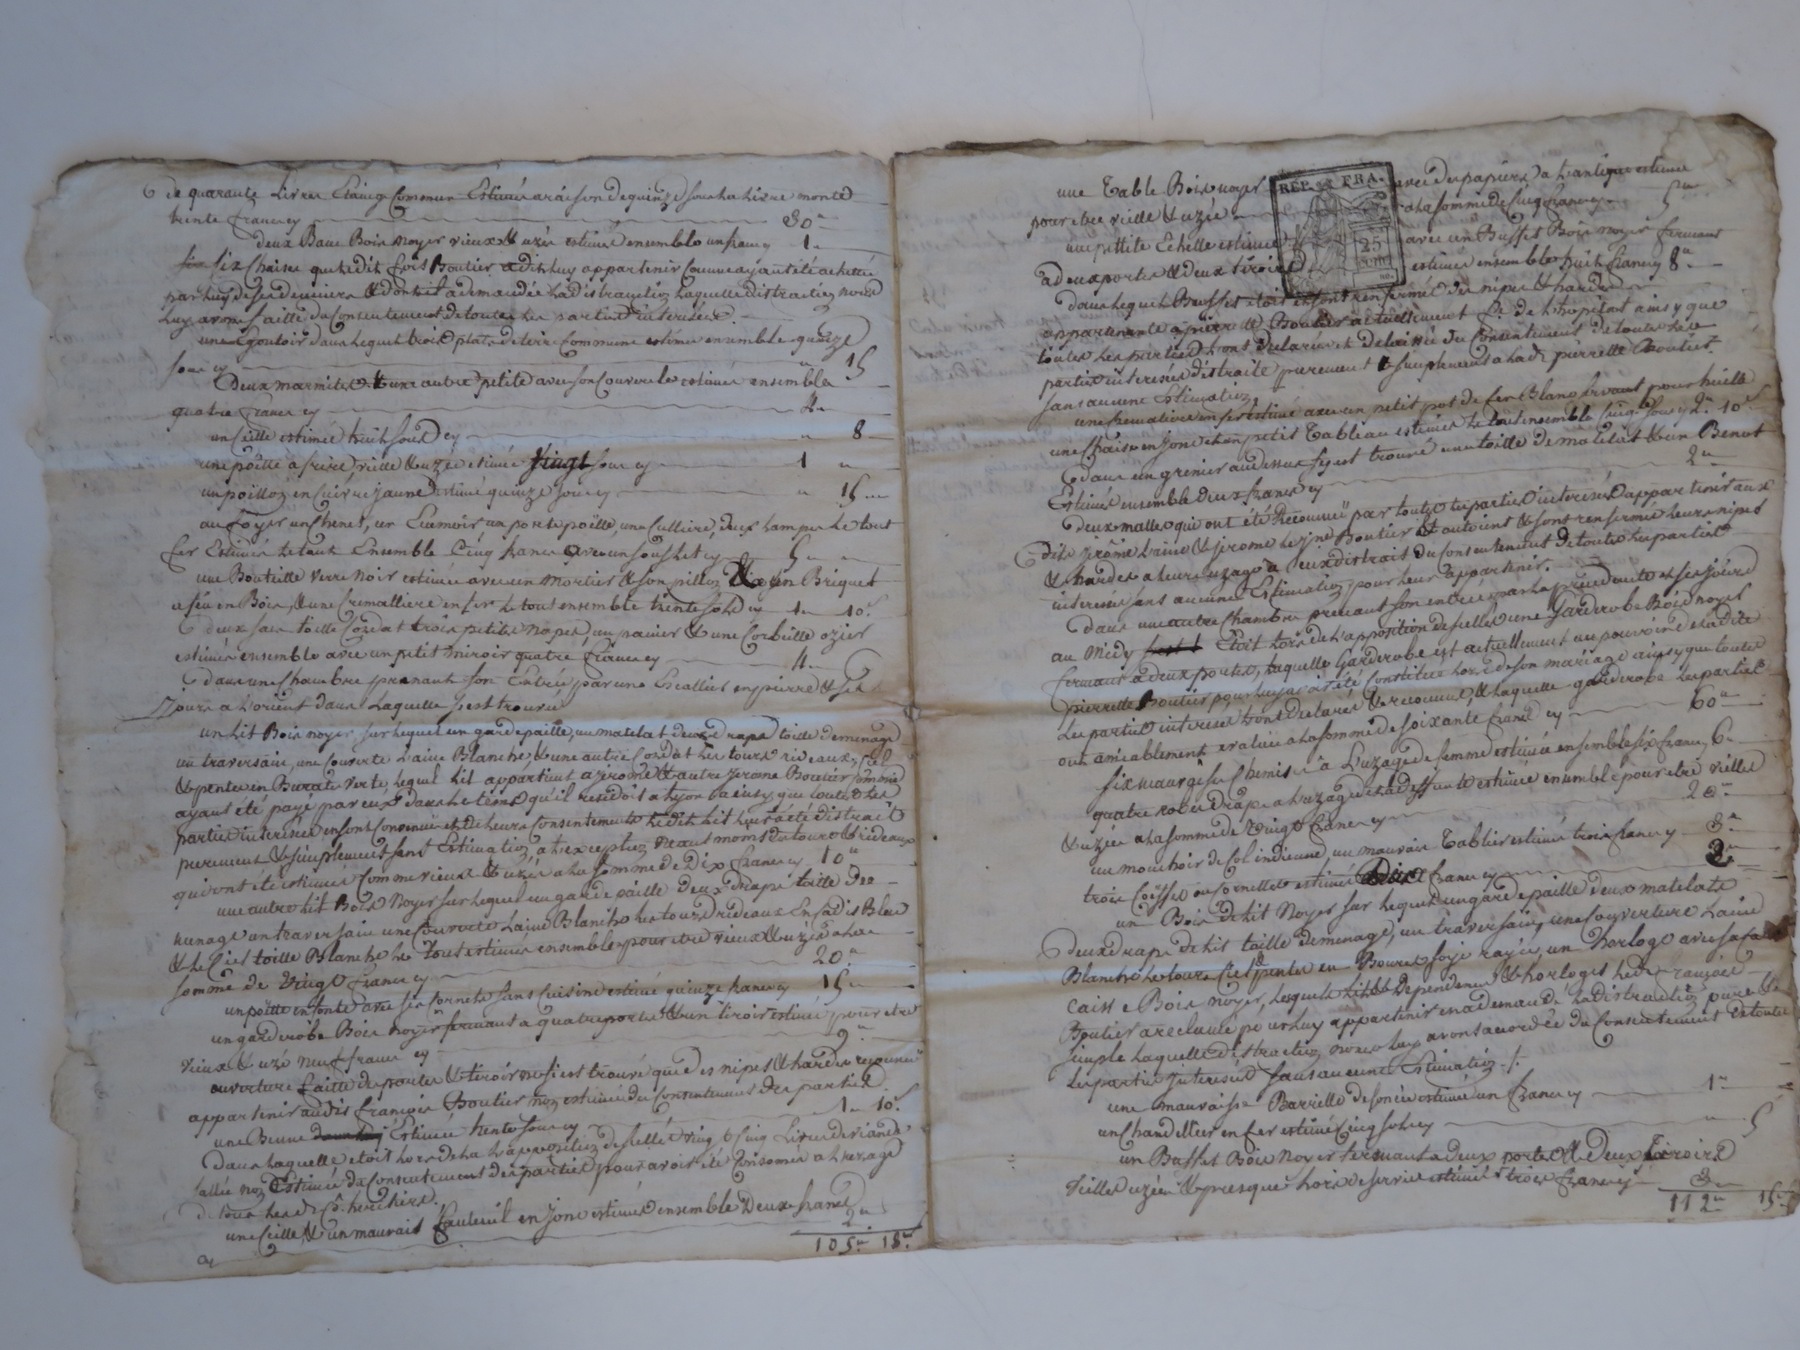 de quarante Livres Etaing Commun Estimé a raison de quinze sous la Livre monte
trente francs cy 30
deux Banc Bois noyer vieux & uzé estimé ensemble un franc cy 1
six Chaises que ledit Boutier a dit luy appartenir comme ayant été achetée
par luy de ses deniers & dont il a demandée la distraction laquelle distraction nous
luy avons faitte du Consentement de toutes les parties interesées.
une Egoutoir dans lequel trois plats de terre Commune estimé ensemble quinze
sous cy 15
Deux marmites & une autre petite avec son Couvercle estimée ensemble
quatre francs cy 4
un seille estimée huit sous cy 8
une poëlle a frire, vieille & uzée estimée vingt sous cy 1
un poëllon en Cuivre jaune estimé quinze sous cy 15
au foyer un Chenet, un Ecumoir un porte poëlle, une Culliere, deux Lampes le tout
fer Estimés le tout Ensemble Cinq francs avec un soufflet cy 5
une Bouteille verre noir estimée avec un Mortier & son pillon & un Briquet
a feu en Bois, & une Cremalliere en fer le tout ensemble trente sols cy 1 10
deux sacs toille trois petites napes, un panier & une Corbeille ozier
estimés ensemble avec un petit miroir quatre francs cy 4
dans une Chambre prenant son Entrée par une Escallier en pierre & ses
Jours a L'orient dans Laquelle s'est trouvé
un Lit Bois noyer, sur lequel un garde paille, un matelat deux drapt toille de menage
un traversain, une Couverte Laine Blanche, & une autre les tours rideaux, Ciel
& pente en Burate verte, lequel Lit appartient a jerome & autre jerome Boutier
ayant été payé par eux dans le tems qu'il residoit a Lyon ainsy que toutes les
parties interesées en sont Convenu & de leurs Consentements ledit Lit leur a été distrait
purement & simplement sans Estimation, a L'exception neant moins du tours & rideaux
qui ont été estimés Comme vieux & uzés a la somme de Dix francs cy 10
une autre Lit Bois Noyer sur lequel un garde paille deux drapt toille de
menage un traversain une Couverte Laine Blanche les tours rideaux En Cadis Bleu
& le Ciel toille Blanche le tout estimés ensemble pour etre vieux & uzés a la
somme de Vingt francs cy 20
un poëlle en fonte avec ses Cornets sans Cuisine estimé quinze francs cy 15
un garderobe Bois noyer fermant a quatre portes & un tiroir estimé pour etre
vieux & uzé neuf francs cy 9
ouverture faitte des portes & tiroir ne s'i est trouvé que des nipes & hardes reconnu
appartenir audit françois Boutier non estimé du Consentement des parties
une Benne Estimée trente sous cy 1 10
Dans laquelle etoit lors de la L'apposition des scellés vingt Cinq Livres de viande
sallée non Estimé du Consentement des parties pour avoir été Consomée a L'usage
de tous les Co héritiers.
une seille, & un mauvais fauteuil en jonc estimés ensemble Deux francs
cy 2
105 18
une Table Bois noyer avec des papiers a L'antique estimé
pour etre vieille & uzée a la somme de Cinq francs 5
une petitte Echelle estimée avec un Buffet Bois noyer fermant
a deux portes & deux tiroirs estimés ensemble huit francs cy 8
dans lequel Buffet etoit & sont renfermé des nipes & hardes
appartenante a pierrette Boutier actuellement de L'hopital ainsy que
toutes les parties l'ont declaré & delaissé du Consentement de toutes les
parties interesées distraite purement & simplement a ladite pierrette Boutier
sans aucune Estimation
avec un petit pot de fer Blanc servant pour huille
une Chaise en Jonc & un petit Tableau estimés le tout ensemble Cinq sous cy 2 10
dans un grenier au dessus s'est trouvé une toille de Matelat & un Benot
Estimés ensemble Deux francs cy 2
deux malles qui ont été Reconnu par toutes les parties interesées appartenir aux
dits jerôme L'ainé & jerome le jne Boutier & sont renfermé leurs nipes
& hardes a leurs uzage a eux distrait du Consentement de toutes les parties
interesées sans aucune Estimation pour leur appartenir.
Dans une autre Chambre prenant son entrée par la précedente & ses jours
au Midy Etoit lors de L'apposition des scellés une Garderobe Bois noyer
fermant a deux portes, laquelle Garderobe est actuellement au pouvoir de ladite
pierrette Boutier pour luy avoir été Constitué lors de son mariage ainsy que toutes
les parties interesées l'ont declaré & reconnu, & laquelle garderobe les parties
ont amiablement evaluée a la somme de soixante francs cy 60
six mauvaise Chemises a L'uzage de femme estimée ensemble six francs 6
quatre robe drape a L'uzage de la deffunte estimée ensemble pour etre vieilles
& uzées a la somme de Vingt francs cy 20
un mouchoir de Col indienne, un mauvais Tablier estimé trois francs cy 3
trois Coëffes ou Cornettes estimée francs cy 2
un Bois de lit Noyer sur lequel un garde paille deux matelats
deux drapt de lit toille de menage, un traversain, une Couverture Laine
Blanche les tours Ciel & pentes en Bouret soye rayée, un horloge avec sa
Caisse Bois noyer, lesquels Lit & Dependance & horloge led. françois
Boutier a reclamé pour luy appartenir en a demandé La distraction pure &
simple Laquelle distraction, nous luy avons accordée du Consentement de toutes
Les parties Interesées sans aucune Estimation.
une mauvaise Barrelle estimé un franc cy 1
un Chandellier en fer estimé Cinq sols cy 5
un Buffet Bois Noyer fermant a Deux portes & Deux tiroirs
vieilles uzées & presque hors de service estimé trois francs cy 3
112 15
REP. FRA.
25